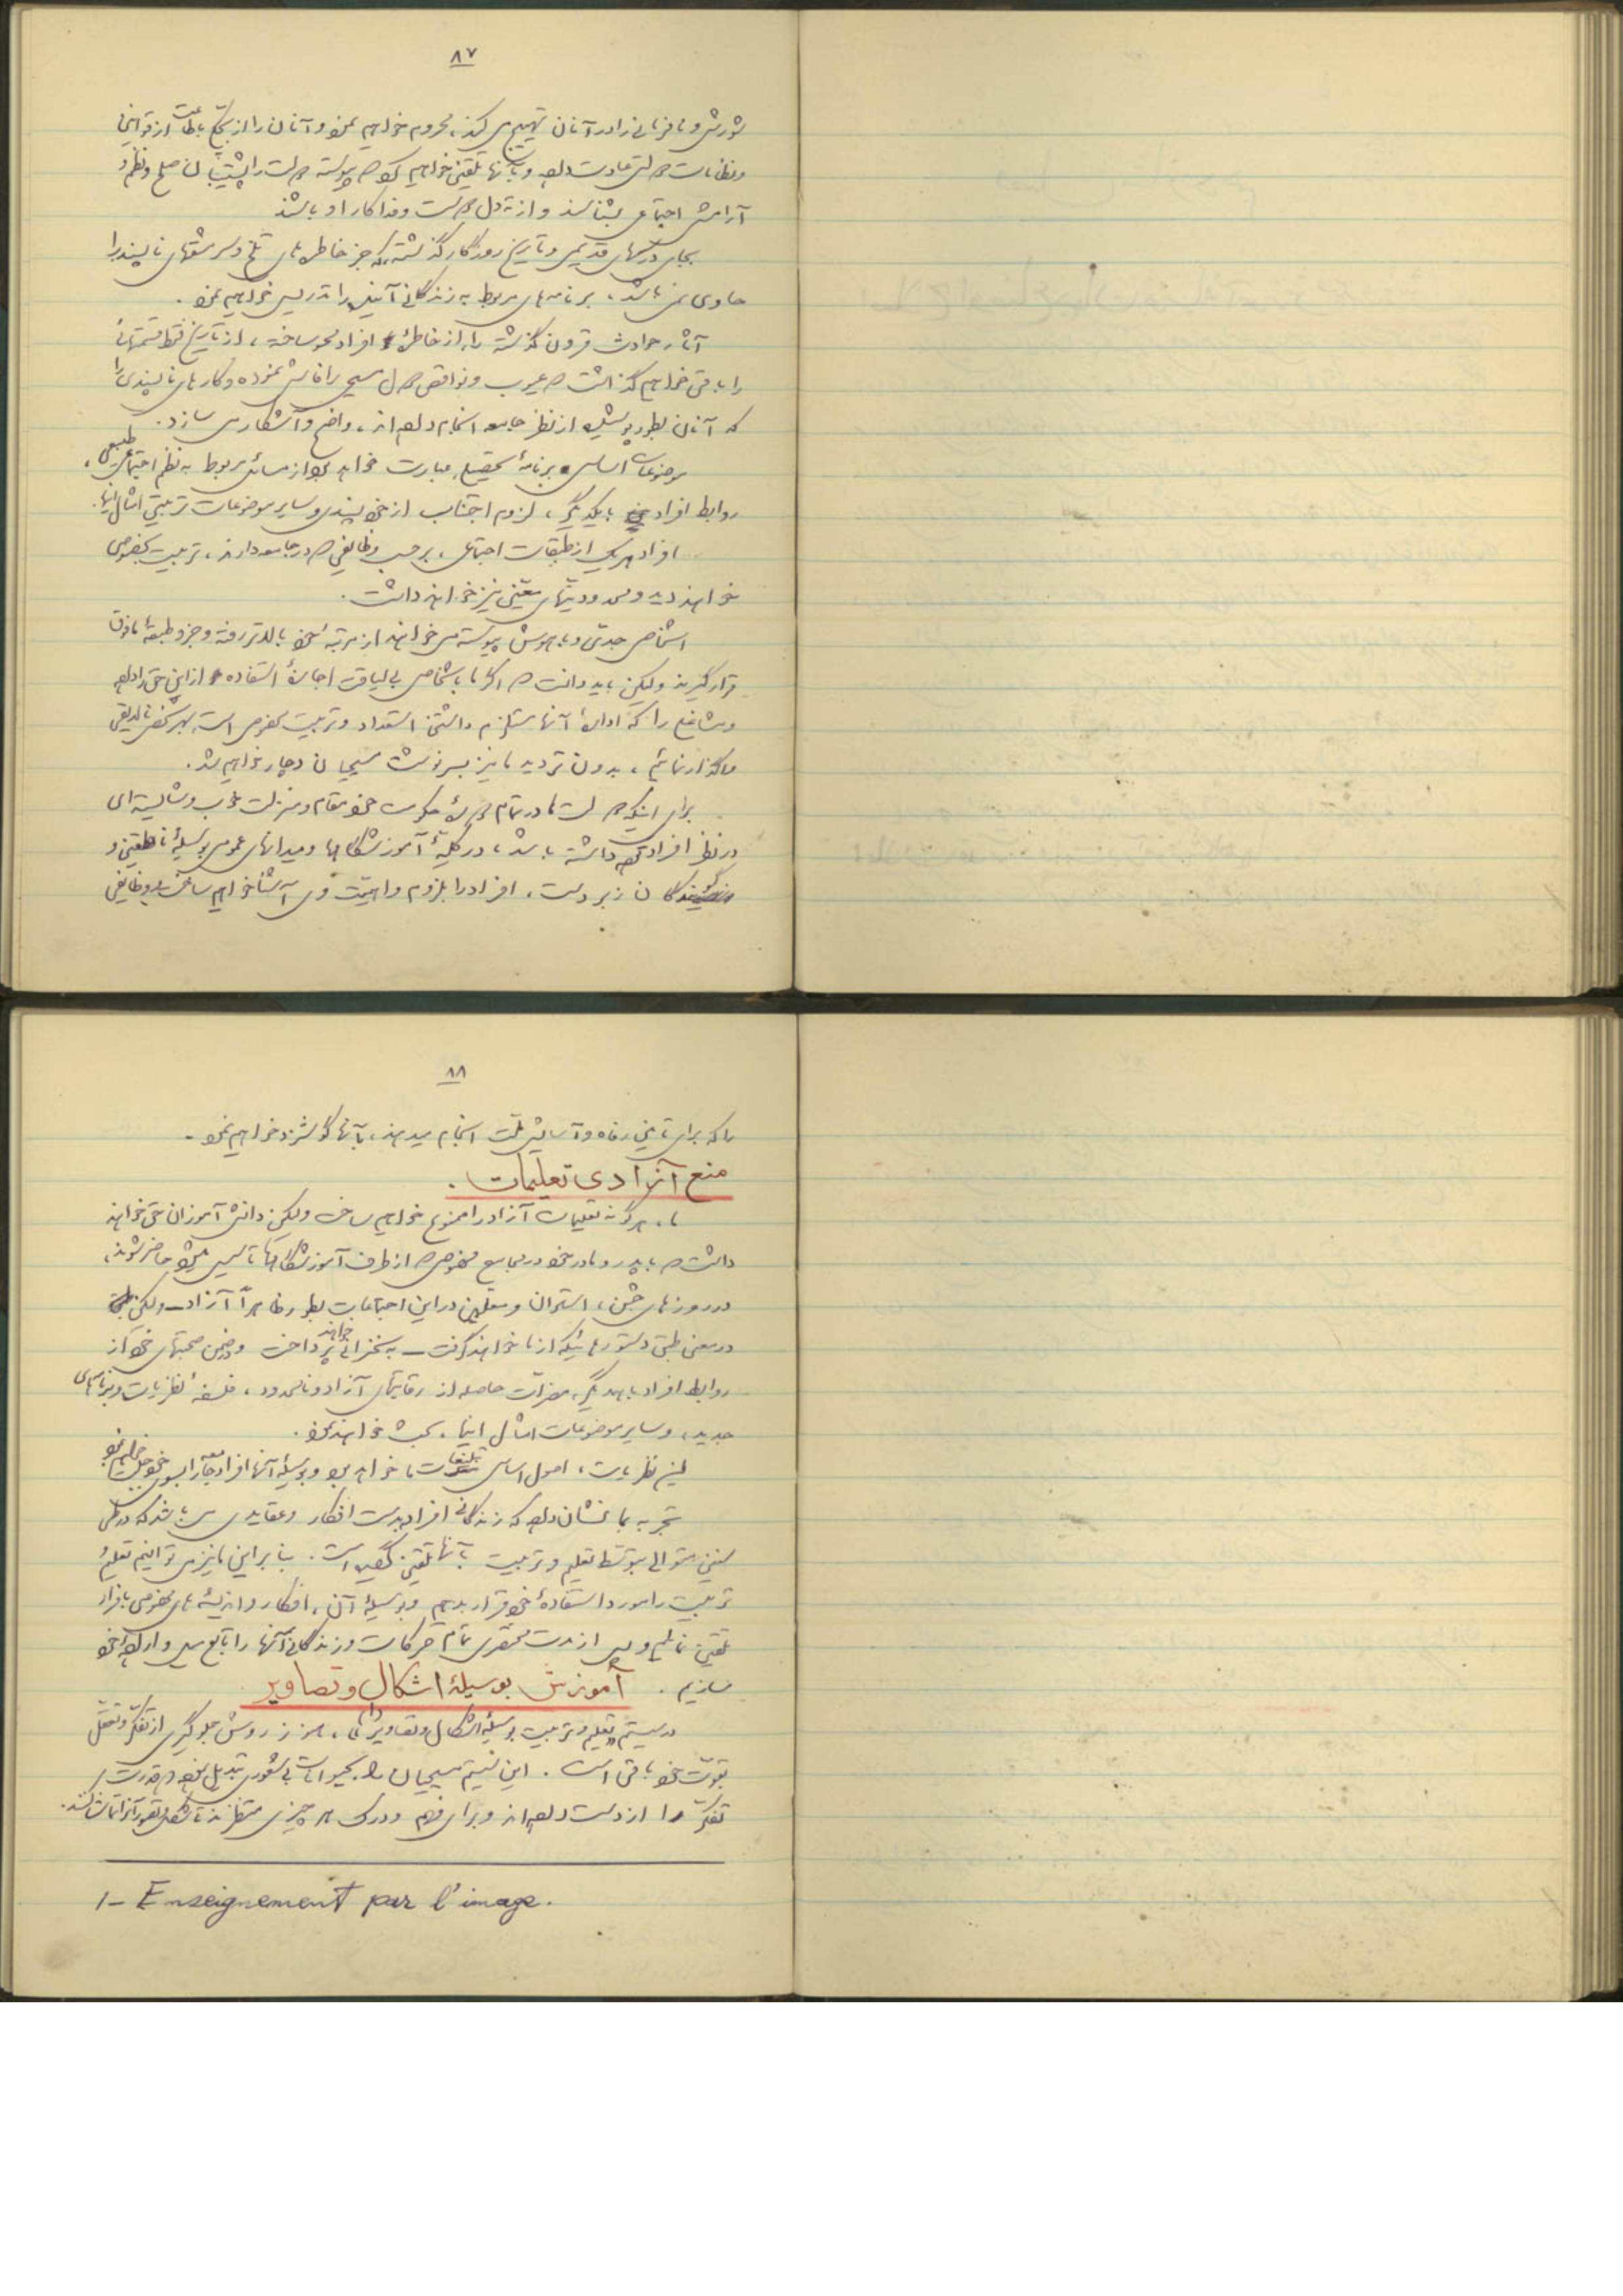 ۸۷
شورش و نافرمانی را در آنان تهییج می‌کند، محروم خواهیم نمود و آنان را از بچگی باطاعت از قوانین
و نظامات دولتی عادت داده و بآنها تلقین خواهیم کرد که پیوسته دولت را پشتیبان صلح و نظم و
آرامش اجتماعی بشناسند و از ته دل دوست و فداکار او باشند
بجای درسهای قدیمی و تاریخ روزگار گذشته که جز خاطره‌های تلخ و سرمشقهای ناپسند را
حاوی نمی‌باشد، برنامه‌های مربوط به زندگانی آینده را تدریس خواهیم نمود.
آثار حوادث قرون گذشته را، از خاطره افراد محو ساخته، از تاریخ فقط قسمتهائی
را باقی خواهیم گذاشت که عیوب و نواقص دول مسیحی را فاش نموده و کارهای ناپسندی را
که آنان بطور پوشیده از نظر جامعه انجام داده‌اند، واضح و آشکار می‌سازد.
موضوعات اساسی برنامه تحصیلی عبارت خواهد بود از مسائل مربوط به نظم اجتماعی طبیعی،
روابط افراد با یکدیگر، لزوم اجتناب از خودپسندی و سایر موضوعات تربیتی امثال اینها.
افراد هریک از طبقات اجتماعی، برحسب وظایفی که در جامعه دارند، تربیت بخصوصی
خواهند دید و محدودیتهای معینی نیز خواهند داشت.
اشخاص جدی و باهوش پیوسته می‌خواهند از مرتبه خود بالاتر رفته و جزو طبقه مافوق
قرار گیرند ولیکن باید دانست که اگر ما باشخاص بی لیاقت اجازه استفاده از این حق را داده
و مشاغلی را که اداره آنها مستلزم داشتن استعداد و تربیت بخصوصی است بهر شخص نالایقی
واگذار نمائیم، بدون تردید ما نیز بسرنوشت مسیحیان دچار خواهیم شد.
برای اینکه دولت ما در تمام دوره حکومت خود مقام و منزلت خوب و شایسته‌ای
در نظر افراد توده داشته باشد، در کلیه آموزشگاهها و میدانهای عمومی بوسیله ناطقین و
گویندگان زبردست، افراد را بلزوم و اهمیت وی آشنا خواهیم ساخت و وظایفی
۸۸
را که برای تأمین رفاه و آسایش ملت انجام میدهد، بآنها گوشزد خواهیم نمود.
منع آزادی تعلیمات.
ما، هرگونه تعلیمات آزاد را ممنوع خواهیم ساخت ولیکن دانش‌آموزان حق خواهند
داشت که با پدر و مادر خود در مجامع مخصوصی که از طرف آموزشگاهها تأسیس میشود حاضر شوند،
در روزهای جشن، استادان و معلمین در این اجتماعات بطور ظاهراً آزاد ـ ولیکن
در معنی طبق دستورهائیکه از ما خواهند گرفت ـ به سخنرانی خواهند پرداخت و در ضمن صحبتهای خود از
روابط افراد با همدیگر، مضرات حاصله از رقابتهای آزاد و نامحدود، فلسفه نظریات و برنامه‌های
جدید، و سایر موضوعات امثال اینها، بحث خواهند نمود.
این نظریات، اصول اساسی تبلیغات ما خواهد بود و بوسیله آنها افراد جامعه را بسوی خود جلب خواهیم نمود
تجربه بما نشان داده که زندگانی افراد بدست افکار و عقایدی می‌باشد که در طی
سنین متوالی بتوسط تعلیم و تربیت بآنها تلقین گردیده است. بنابراین ما نیز می‌توانیم تعلیم و
تربیت را مورد استفاده خود قرار بدهیم و بوسیله آن، افکار و اندیشه‌های مخصوصی بافراد
تلقین نمائیم و پس از مدت مختصری تمام حرکات و زندگانی آنها را تابع میل و اراده خود
سازیم. آموزش بوسیله اشکال و تصاویر
در سیستم تعلیم و تربیت بوسیله اشکال و تصاویر (۱) ما، هنوز روش جلوگیری از تفکر و تعقل
بقوت خود باقی است. این سیستم مسیحیان را بحیوانات بی شعوری تبدیل نموده که قدرت
تفکر را از دست داده‌اند و برای فهم و درک هر چیزی منتظرند تا شکل و تصویر آنرا تماشا کنند.
1- Enseignement par l'image.